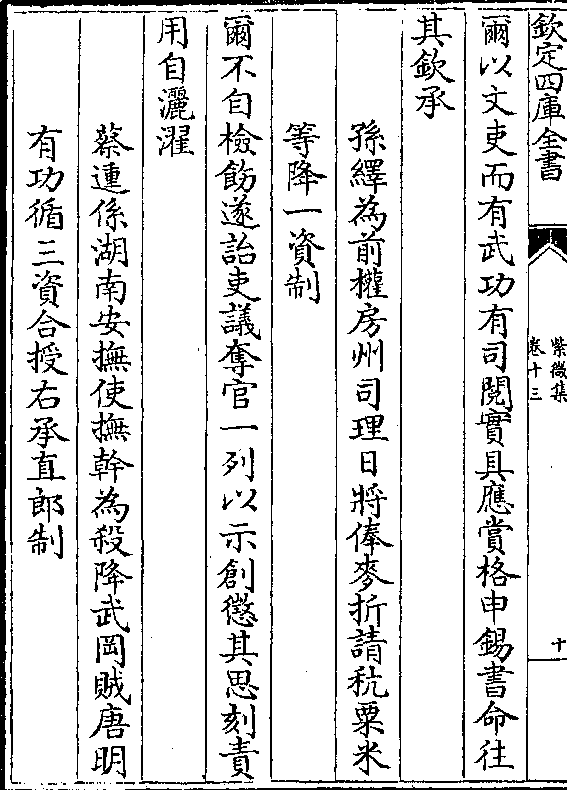 欽定四庫全書
紫微集
卷十三
十
爾以文吏而有武功有司閱實具應賞格申錫書命往
其欽承
孫繹為前權房州司理日將俸麥折請秔粟米
等降一資制
爾不自檢飭遂詒吏議奪官一列以示創懲其思刻責
用自灑濯
蔡連係湖南安撫使撫幹為殺降武岡賊唐明
有功循三資合授右承直郎制